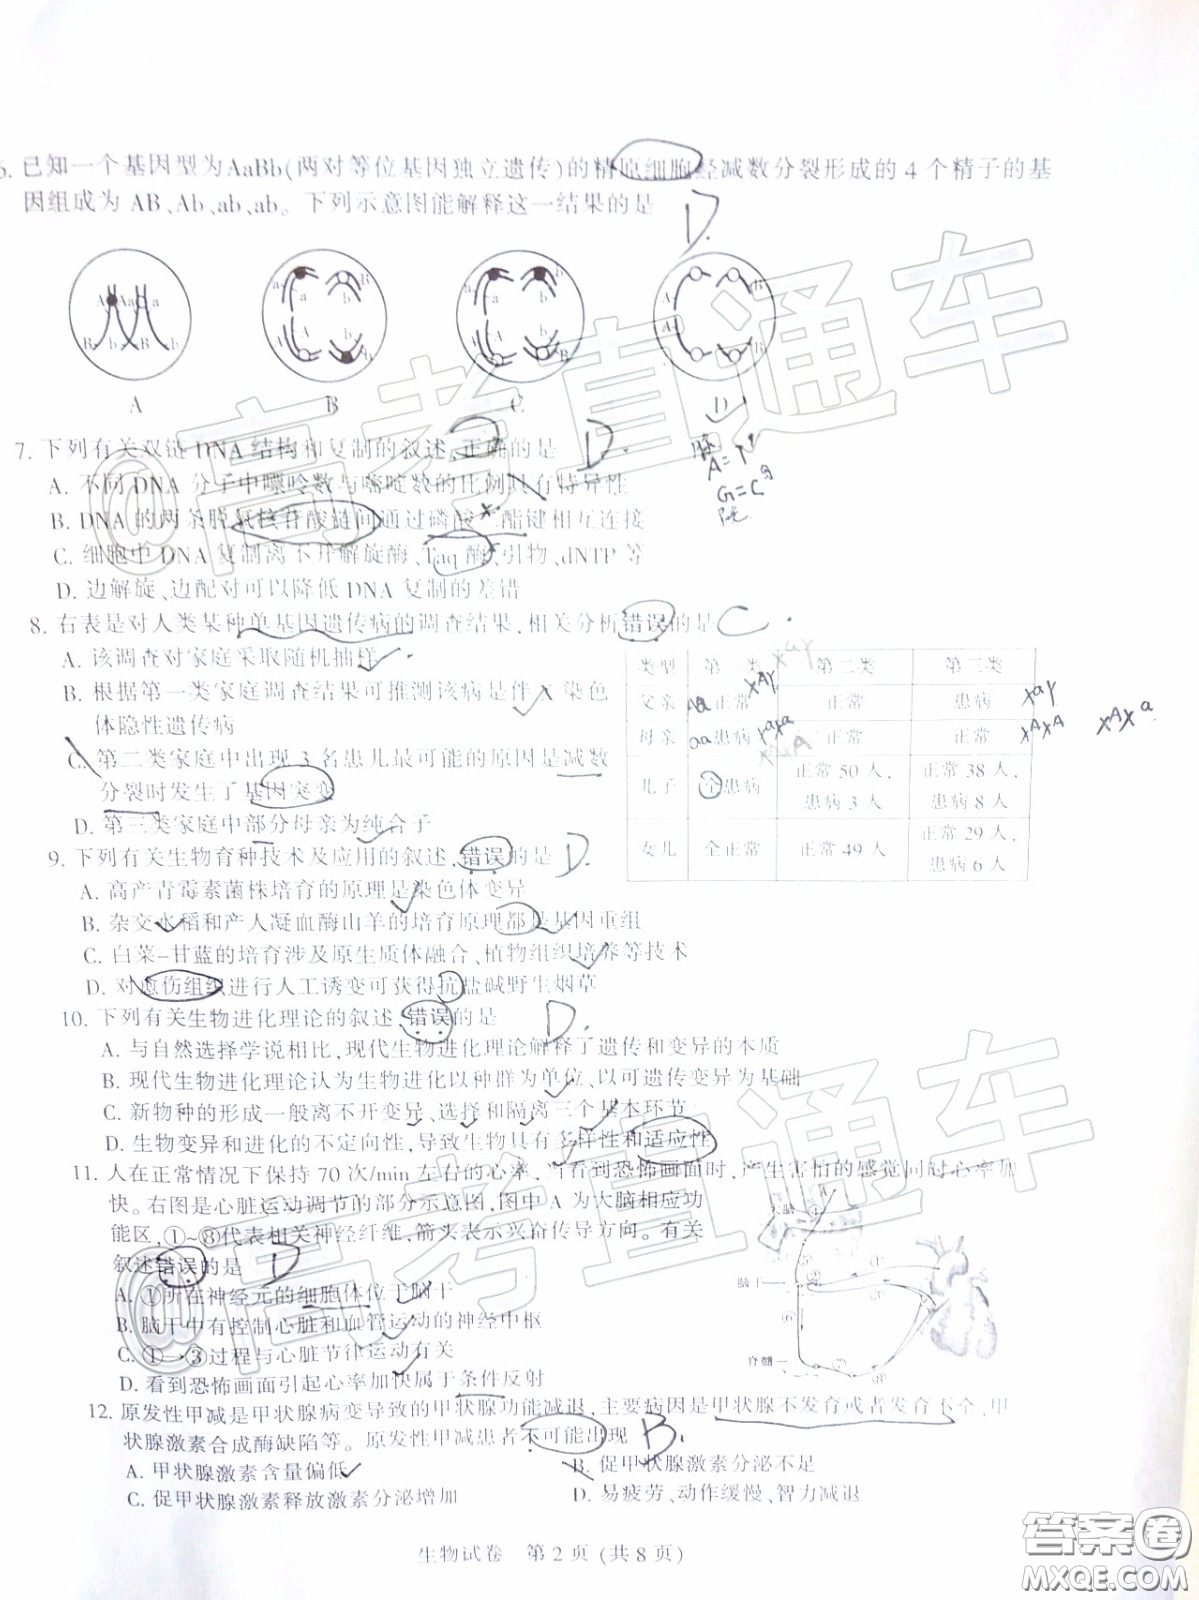 6. 已知一个基因型为AaBb(两对等位基因独立遗传)的精原细胞经减数分裂形成的4个精子的基
因组成为 AB、Ab、ab、ab。下列示意图能解释这一结果的是 D.
A B C D
7. 下列有关双链 DNA 结构和复制的叙述,正确的是 D.
A. 不同 DNA 分子中嘌呤数与嘧啶数的比例具有特异性
B. DNA 的两条脱氧核苷酸链间通过磷酸二酯键相互连接
C. 细胞中 DNA 复制离不开解旋酶、Taq 酶、引物、dNTP 等
D. 边解旋、边配对可以降低 DNA 复制的差错
A=T
G=C
8. 右表是对人类某种单基因遗传病的调查结果,相关分析错误的是 C.
A. 该调查对家庭采取随机抽样
B. 根据第一类家庭调查结果可推测该病是伴 X 染色
体隐性遗传病
C. 第二类家庭中出现 3 名患儿最可能的原因是减数
分裂时发生了基因突变
D. 第三类家庭中部分母亲为纯合子
类型 第一类 第二类 第三类
父亲 正常 正常 患病
母亲 患病 正常 正常
儿子 全患病 正常 50 人,患病 3 人 正常 38 人,患病 8 人
女儿 全正常 正常 49 人 正常 29 人,患病 6 人
9. 下列有关生物育种技术及应用的叙述,错误的是 D.
A. 高产青霉素菌株培育的原理是染色体变异
B. 杂交水稻和产人凝血酶山羊的培育原理都是基因重组
C. 白菜-甘蓝的培育涉及原生质体融合、植物组织培养等技术
D. 对愈伤组织进行人工诱变可获得抗盐碱野生烟草
10. 下列有关生物进化理论的叙述,错误的是 D.
A. 与自然选择学说相比,现代生物进化理论解释了遗传和变异的本质
B. 现代生物进化理论认为生物进化以种群为单位、以可遗传变异为基础
C. 新物种的形成一般离不开变异、选择和隔离三个基本环节
D. 生物变异和进化的不定向性,导致生物具有多样性和适应性
11. 人在正常情况下保持 70 次/min 左右的心率,当看到恐怖画面时,产生害怕的感觉同时心率加
快。右图是心脏运动调节的部分示意图,图中 A 为大脑相应功
能区,①~⑧代表相关神经纤维,箭头表示兴奋传导方向。有关
叙述错误的是 D
A. ①所在神经元的细胞体位于脑干
B. 脑干中有控制心脏和血管运动的神经中枢
C. ①→③过程与心脏节律运动有关
D. 看到恐怖画面引起心率加快属于条件反射
大脑
脑干
脊髓
12. 原发性甲减是甲状腺病变导致的甲状腺功能减退,主要病因是甲状腺不发育或者发育不全、甲
状腺激素合成酶缺陷等。原发性甲减患者不可能出现 B.
A. 甲状腺激素含量偏低 B. 促甲状腺激素分泌不足
C. 促甲状腺激素释放激素分泌增加 D. 易疲劳、动作缓慢、智力减退
生物试卷 第 2 页 (共 8 页)
@高考直通车
@高考直通车
答案卷
MXQE.COM